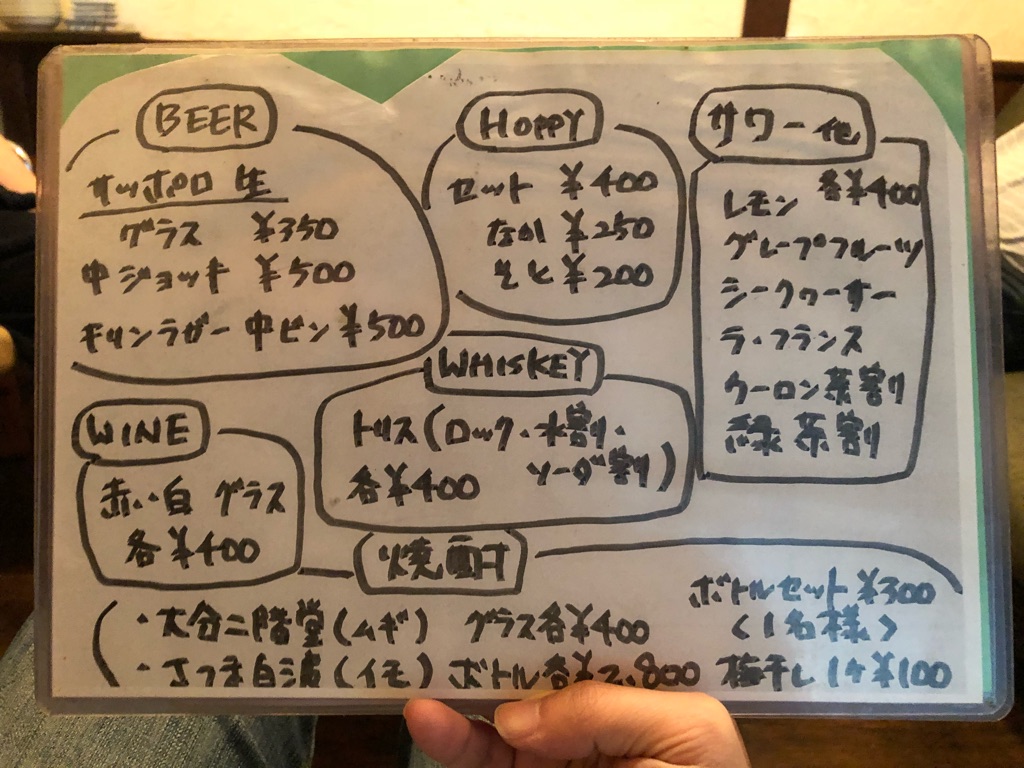 BEER
サッポロ 生
グラス ¥350
中ジョッキ ¥500
キリンラガー 中ビン ¥500
HOPPY
セット ¥400
なか ¥250
そと ¥200
サワー他
各¥400
レモン
グレープフルーツ
シークヮーサー
ラ・フランス
ウーロン茶割り
緑茶割
WHISKEY
トリス(ロック・水割・
ソーダ割)
各¥400
WINE
赤・白 グラス
各¥400
焼酎
・大分二階堂(ムギ) グラス各¥400
・さつま白波(イモ) ボトル各¥2,800
ボトルセット ¥300
<1名様>
梅干し 1ケ ¥100